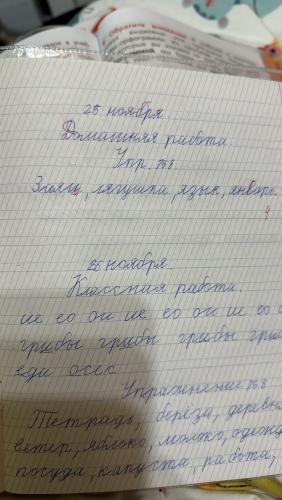 Обратите внимание
25 ноября.
Домашняя работа.
Упр. 258.
Заяц, лягушка, язык, январь.
4
26 ноября.
Классная работа.
ие ео ои ие ео ои ие ео
грибы грибы грибы гри
Упражнение 258
Тетрадь, береза, деревн
ветер, яблоко, молоко, одежд
посуда, капуста, работа,